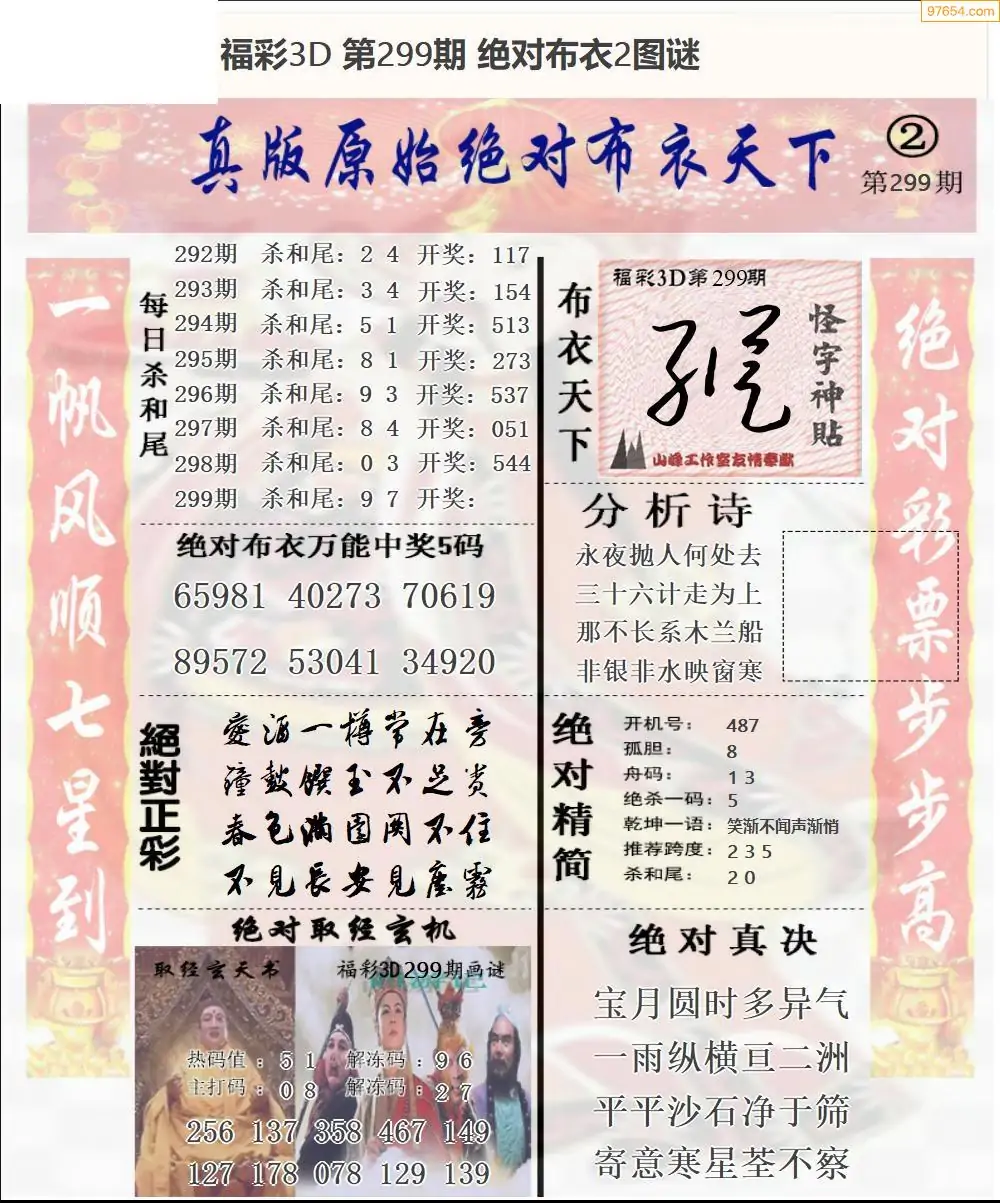 97654.com
福彩3D 第299期 绝对布衣2图谜
真版原始绝对布衣天下
②
第299期
一帆风顺七星到
每日杀和尾
292期 杀和尾：2 4 开奖：117
293期 杀和尾：3 4 开奖：154
294期 杀和尾：5 1 开奖：513
295期 杀和尾：8 1 开奖：273
296期 杀和尾：9 3 开奖：537
297期 杀和尾：8 4 开奖：051
298期 杀和尾：0 3 开奖：544
299期 杀和尾：9 7 开奖：
绝对布衣万能中奖5码
65981 40273 70619
89572 53041 34920
絕對正彩
爱酒一樽常在旁
鐘鼓饌玉不足贵
春色满园関不住
不見長安見塵霧
绝对取经玄机
取经玄天书
福彩3D299期画谜
热码值：5 1 解冻码：9 6
主打码：0 8 解冻码：2 7
256 137 358 467 149
127 178 078 129 139
布衣天下
福彩3D第299期
怪字神貼
山峰工作室友情奉献
分析诗
永夜抛人何处去
三十六计走为上
那不长系木兰船
非银非水映窗寒
绝对精简
开机号：487
孤胆：8
舟码：1 3
绝杀一码：5
乾坤一语：笑渐不闻声渐悄
推荐跨度：2 3 5
杀和尾：2 0
绝对真决
宝月圆时多异气
一雨纵横亘二洲
平平沙石净于筛
寄意寒星荃不察
绝对彩票步步高